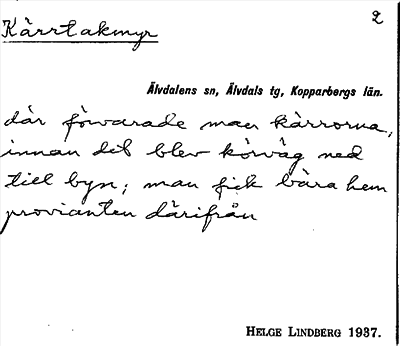 2
Kärrtakmyr
Älvdalens sn, Älvdals tg, Kopparbergs län.
där förvarade man kärrorna,
innan det blev körväg ned
till byn; man fick bära hem
provianten därifrån
HELGE LINDBERG 1937.